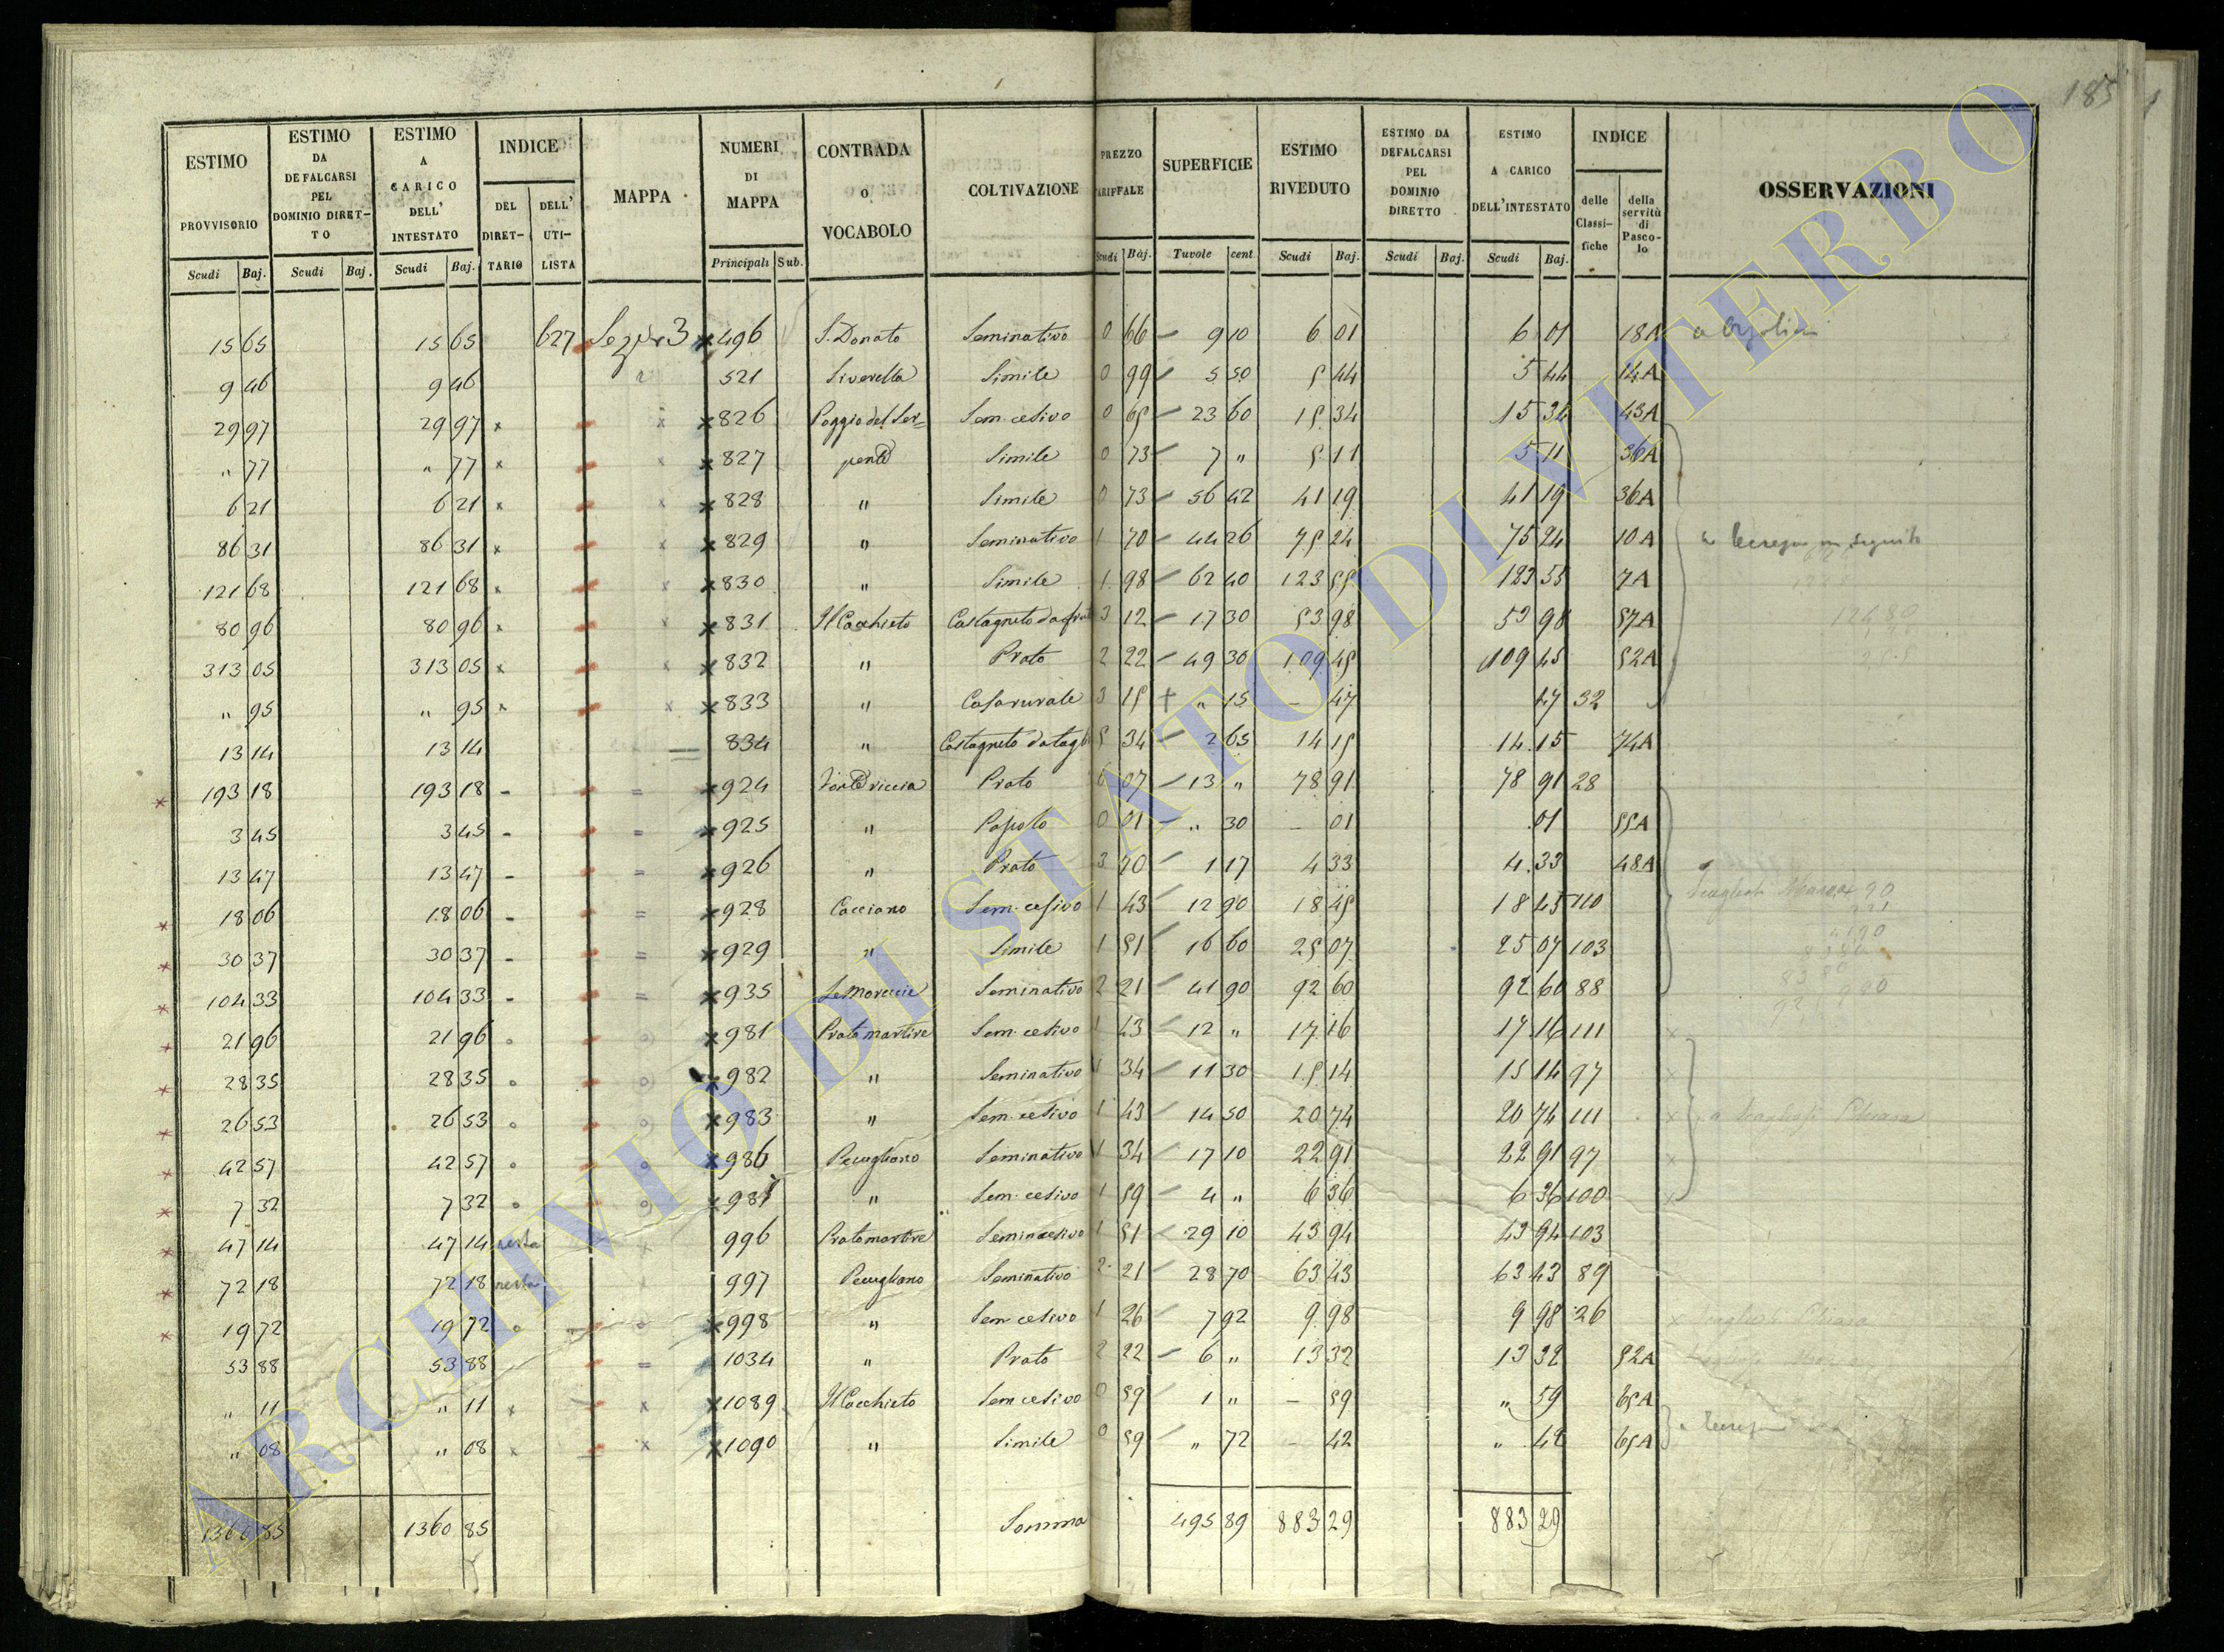 185
ESTIMO PROVVISORIO Scudi Baj.
ESTIMO DA DEFALCARSI PEL DOMINIO DIRETTO Scudi Baj.
ESTIMO A CARICO DELL' INTESTATO Scudi Baj.
INDICE DEL DIRETTARIO DELL' UTILISTA
MAPPA
NUMERI DI MAPPA Principali Sub.
CONTRADA O VOCABOLO
COLTIVAZIONE
PREZZO TARIFFALE Scudi Baj.
SUPERFICIE Tavole cent
ESTIMO RIVEDUTO Scudi Baj.
ESTIMO DA DEFALCARSI PEL DOMINIO DIRETTO Scudi Baj.
ESTIMO A CARICO DELL'INTESTATO Scudi Baj.
INDICE delle Classifiche della servitù di Pascolo
OSSERVAZIONI
15 65 15 65 627 Sezne 3 x 496 S. Donato Seminativo 0 66 9 10 6 01 6 01 18A
9 46 9 46 " 521 Liverella Simile 0 99 5 50 5 44 5 44 14A
29 97 29 97 x x x 826 Poggio del Ser= Sem. cesivo 0 65 23 60 15 34 15 34 43A
" 77 " 77 x x x 827 pente Simile 0 73 7 " 5 11 5 11 36A
6 21 6 21 x x x 828 " Simile 0 73 56 42 41 19 41 19 36A
86 31 86 31 x x x 829 " Seminativo 1 70 44 26 75 24 75 24 10A in seguito
121 68 121 68 x x x 830 " Simile 1 98 62 40 123 55 123 55 7A
80 96 80 96 x x x 831 Il Cacchieto Castagneto da frut 3 12 17 30 53 98 53 98 57A
313 05 313 05 x x x 832 " Prato 2 22 49 30 109 45 109 45 52A
" 95 " 95 x x x 833 " Casa rurale 3 15 + " 15 – 47 47 32
13 14 13 14 834 " Castagneto da tagl 5 34 2 65 14 15 14.15 74A
x 193 18 193 18 - = x 924 Prato 6 07 13 " 78 91 78 91 28
3 45 3 45 - = x 925 " Pascolo 0 01 " 30 – 01 .01 55A
13 47 13 47 - = x 926 " Prato 3 70 1 17 4 33 4.33 48A
x 18 06 18 06 - = x 928 Cacciano Sem. cesivo 1 43 12 90 18 45 18 45 110
x 30 37 30 37 - = x 929 " Simile 1 51 16 60 25 07 25 07 103
x 104 33 104 33 - = x 935 Le Morecie Seminativo 2 21 41 90 92 60 92 60 88
x 21 96 21 96 o o x 981 Prato martire Sem. cesivo 1 43 12 " 17.16 17.16 111
x 28 35 28 35 o o x 982 " Seminativo 1 34 11 30 15 14 15 14 97
x 26 53 26 53 o o x 983 " Sem. cesivo 1 43 14 50 20 74 20 74 111
x 42 57 42 57 o o x 986 Pecugliano Seminativo 1 34 17 10 22 91 22 91 97
x 7 32 7 32 o o x " Sem. cesivo 1 59 4 " 6 36 6 36 100
x 47 14 47 14 resta x 996 Prato martire Semin cesivo 1 51 29 10 43 94 43 94 103
x 72 18 72 18 resta 997 Pecugliano Seminativo 2 21 28 70 63 43 63 43 89
x 19 72 19 72 o o x 998 " Sem cesivo 1 26 7 92 9.98 9 98 26
53 88 53 88 = 1034 " Prato 2 22 6 " 13 32 13 32 52A
" 11 " 11 x x x 1089 Il Cacchieto Sem cesivo 0 59 1 " – 59 " 59 65A
" 08 " 08 x x x 1090 " Simile 0 59 " 72 – 42 " 42 65A
1360 85 1360 85 Somma 495 89 883 29 883 29
ARCHIVIO DI STATO DI VITERBO